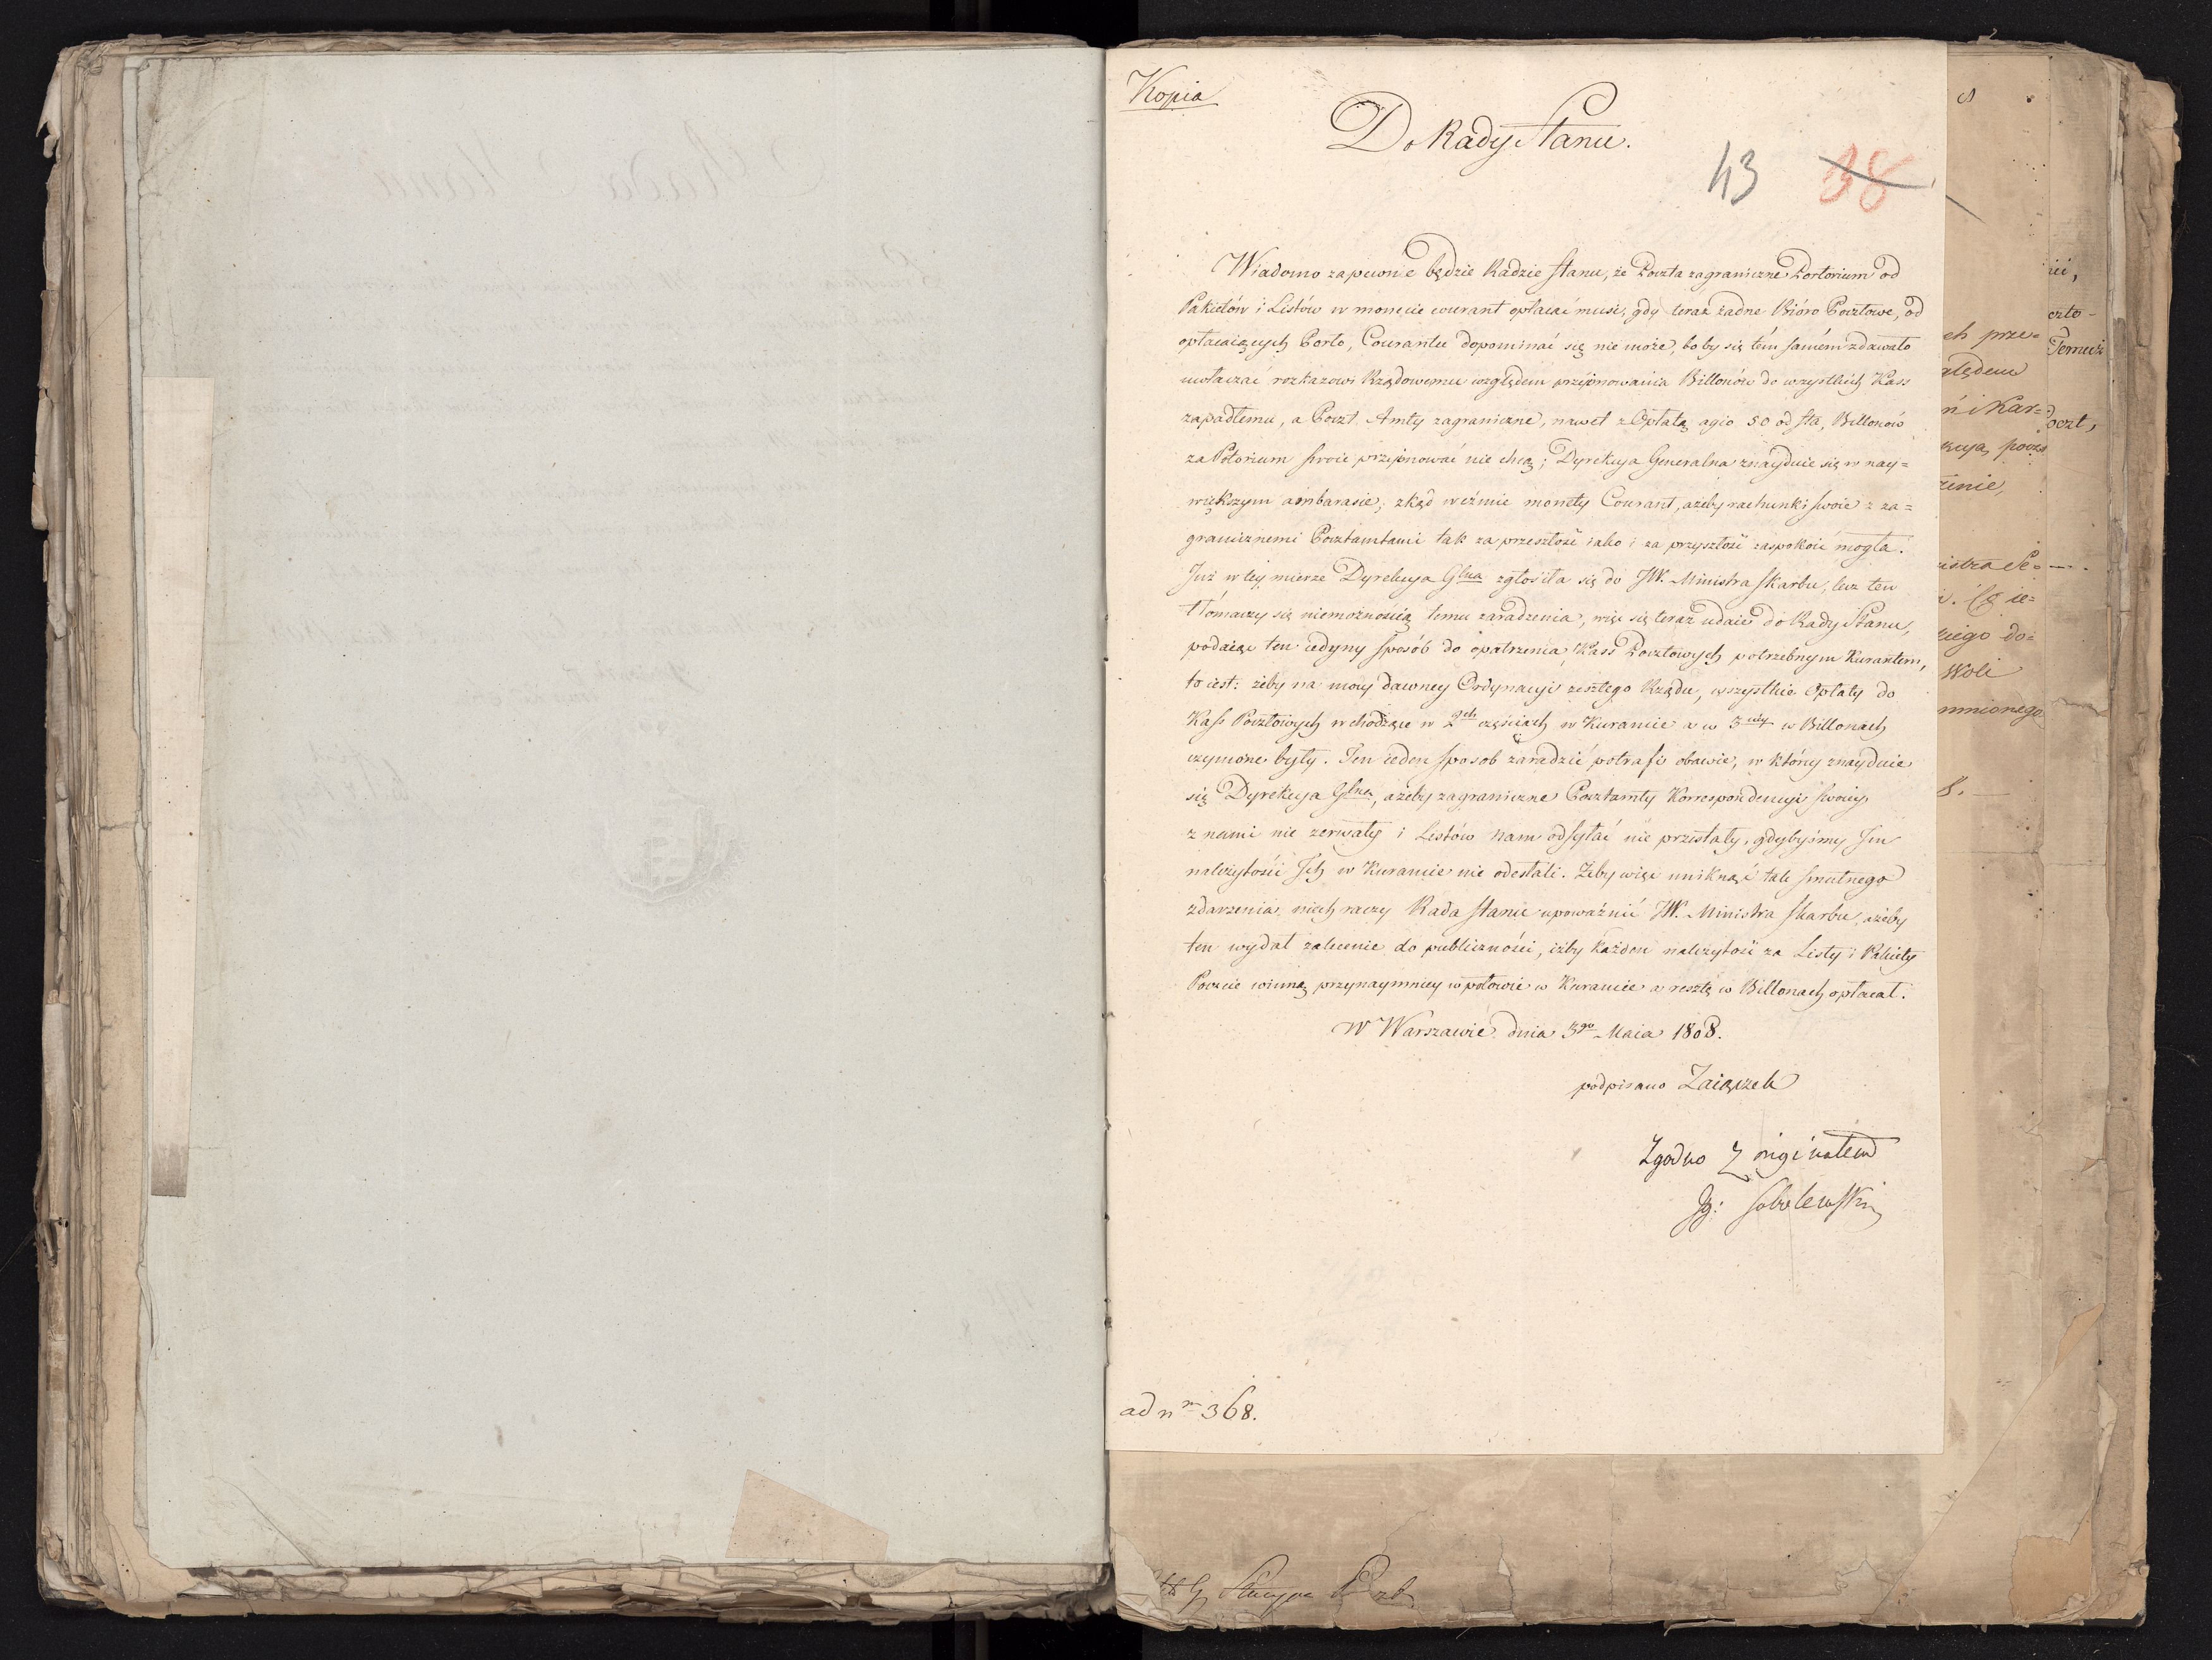 Kopia
Do Rady Stanu.
43 38
Wiadomo zapewnie będzie Radzie Stanu, że Poczta zagraniczne Portorium od
Pakietów i Listów w monecie courant opłacać musi, gdy teraz żadne Bióro Pocztowe, od
opłacaiących Porto, Courantu dopominać się nie może, bo by się tém samém zdawało
uwłaczać rozkazowi Rządowemu względem przyimowania Billonów do wszystkich Kass
zapadłemu, a Poczt. Amty zagraniczne, nawet z Opłatą agio 50 od sta, Billonów
za Potorium swoie przyimować nie chcą; Dyrekcya Generalna znayduie się w nay=
większym ambarasie; zkąd weźmie monety Courant, ażeby rachunki swoie z za=
granicznemi Pocztamtami tak za przeszłość iako i za przyszłość zaspokoić mogła.
Już w tey mierze Dyrekcya Glna zgłosiła się do JW. Ministra Skarbu, lecz ten
tłómaczy się niemożnością temu zaradzenia, więc się teraz udaie do Rady Stanu,
podaiąc ten iedyny sposób do opatrzenia Kass Pocztowych potrzebnym Kurantem,
to iest: żeby na mocy dawney Ordynacyi zeszłego Rządu, wszystkie Opłaty do
Kass Pocztowych wchodzące w 2ch częściach w Kurancie a w 3ciey w Billonach
czynione były. Ten ieden sposob zaradzić potrafi obawie, w którey znayduie
się Dyrekcya Glna, ażeby zagraniczne Pocztamty Korrespondencyi swoiey
z nami nie zerwały i Listów nam odsyłać nie przestały, gdybyśmy Im
należytości Ich w Kurancie nie odesłali. Żeby więc uniknąć tak smutnego
zdarzenia, niech raczy Rada Stanu upoważnić JW. Ministra Skarbu, ażeby
ten wydał zalecenie do publiczności, iżby każden należytość za Listy i Pakiety
Poczcie winną przynaymniey w połowie w Kurancie a resztę w Billonach opłacał.
W Warszawie dnia 3go Maia 1808.
podpisano Zaiączek
Zgodno z originałem
Ig: Sobolewski
ad nm 368.
ch prze=
ględem
ń i Kar=
istra Se=
iego do=
Woli
mnionego
8.